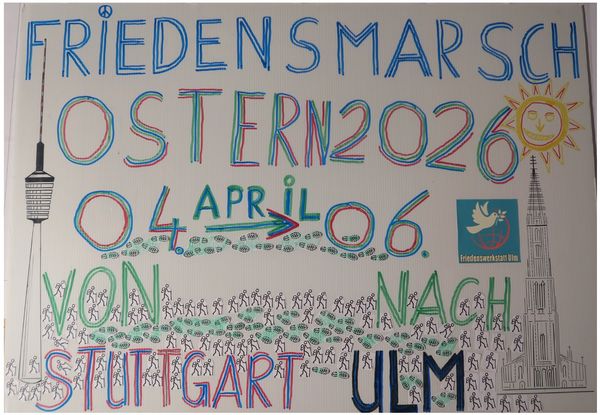 FRIEDENSMARSCH
OSTERN 2026
04. APRIL 06.
Friedenswerkstatt Ulm
VON NACH
STUTTGART ULM